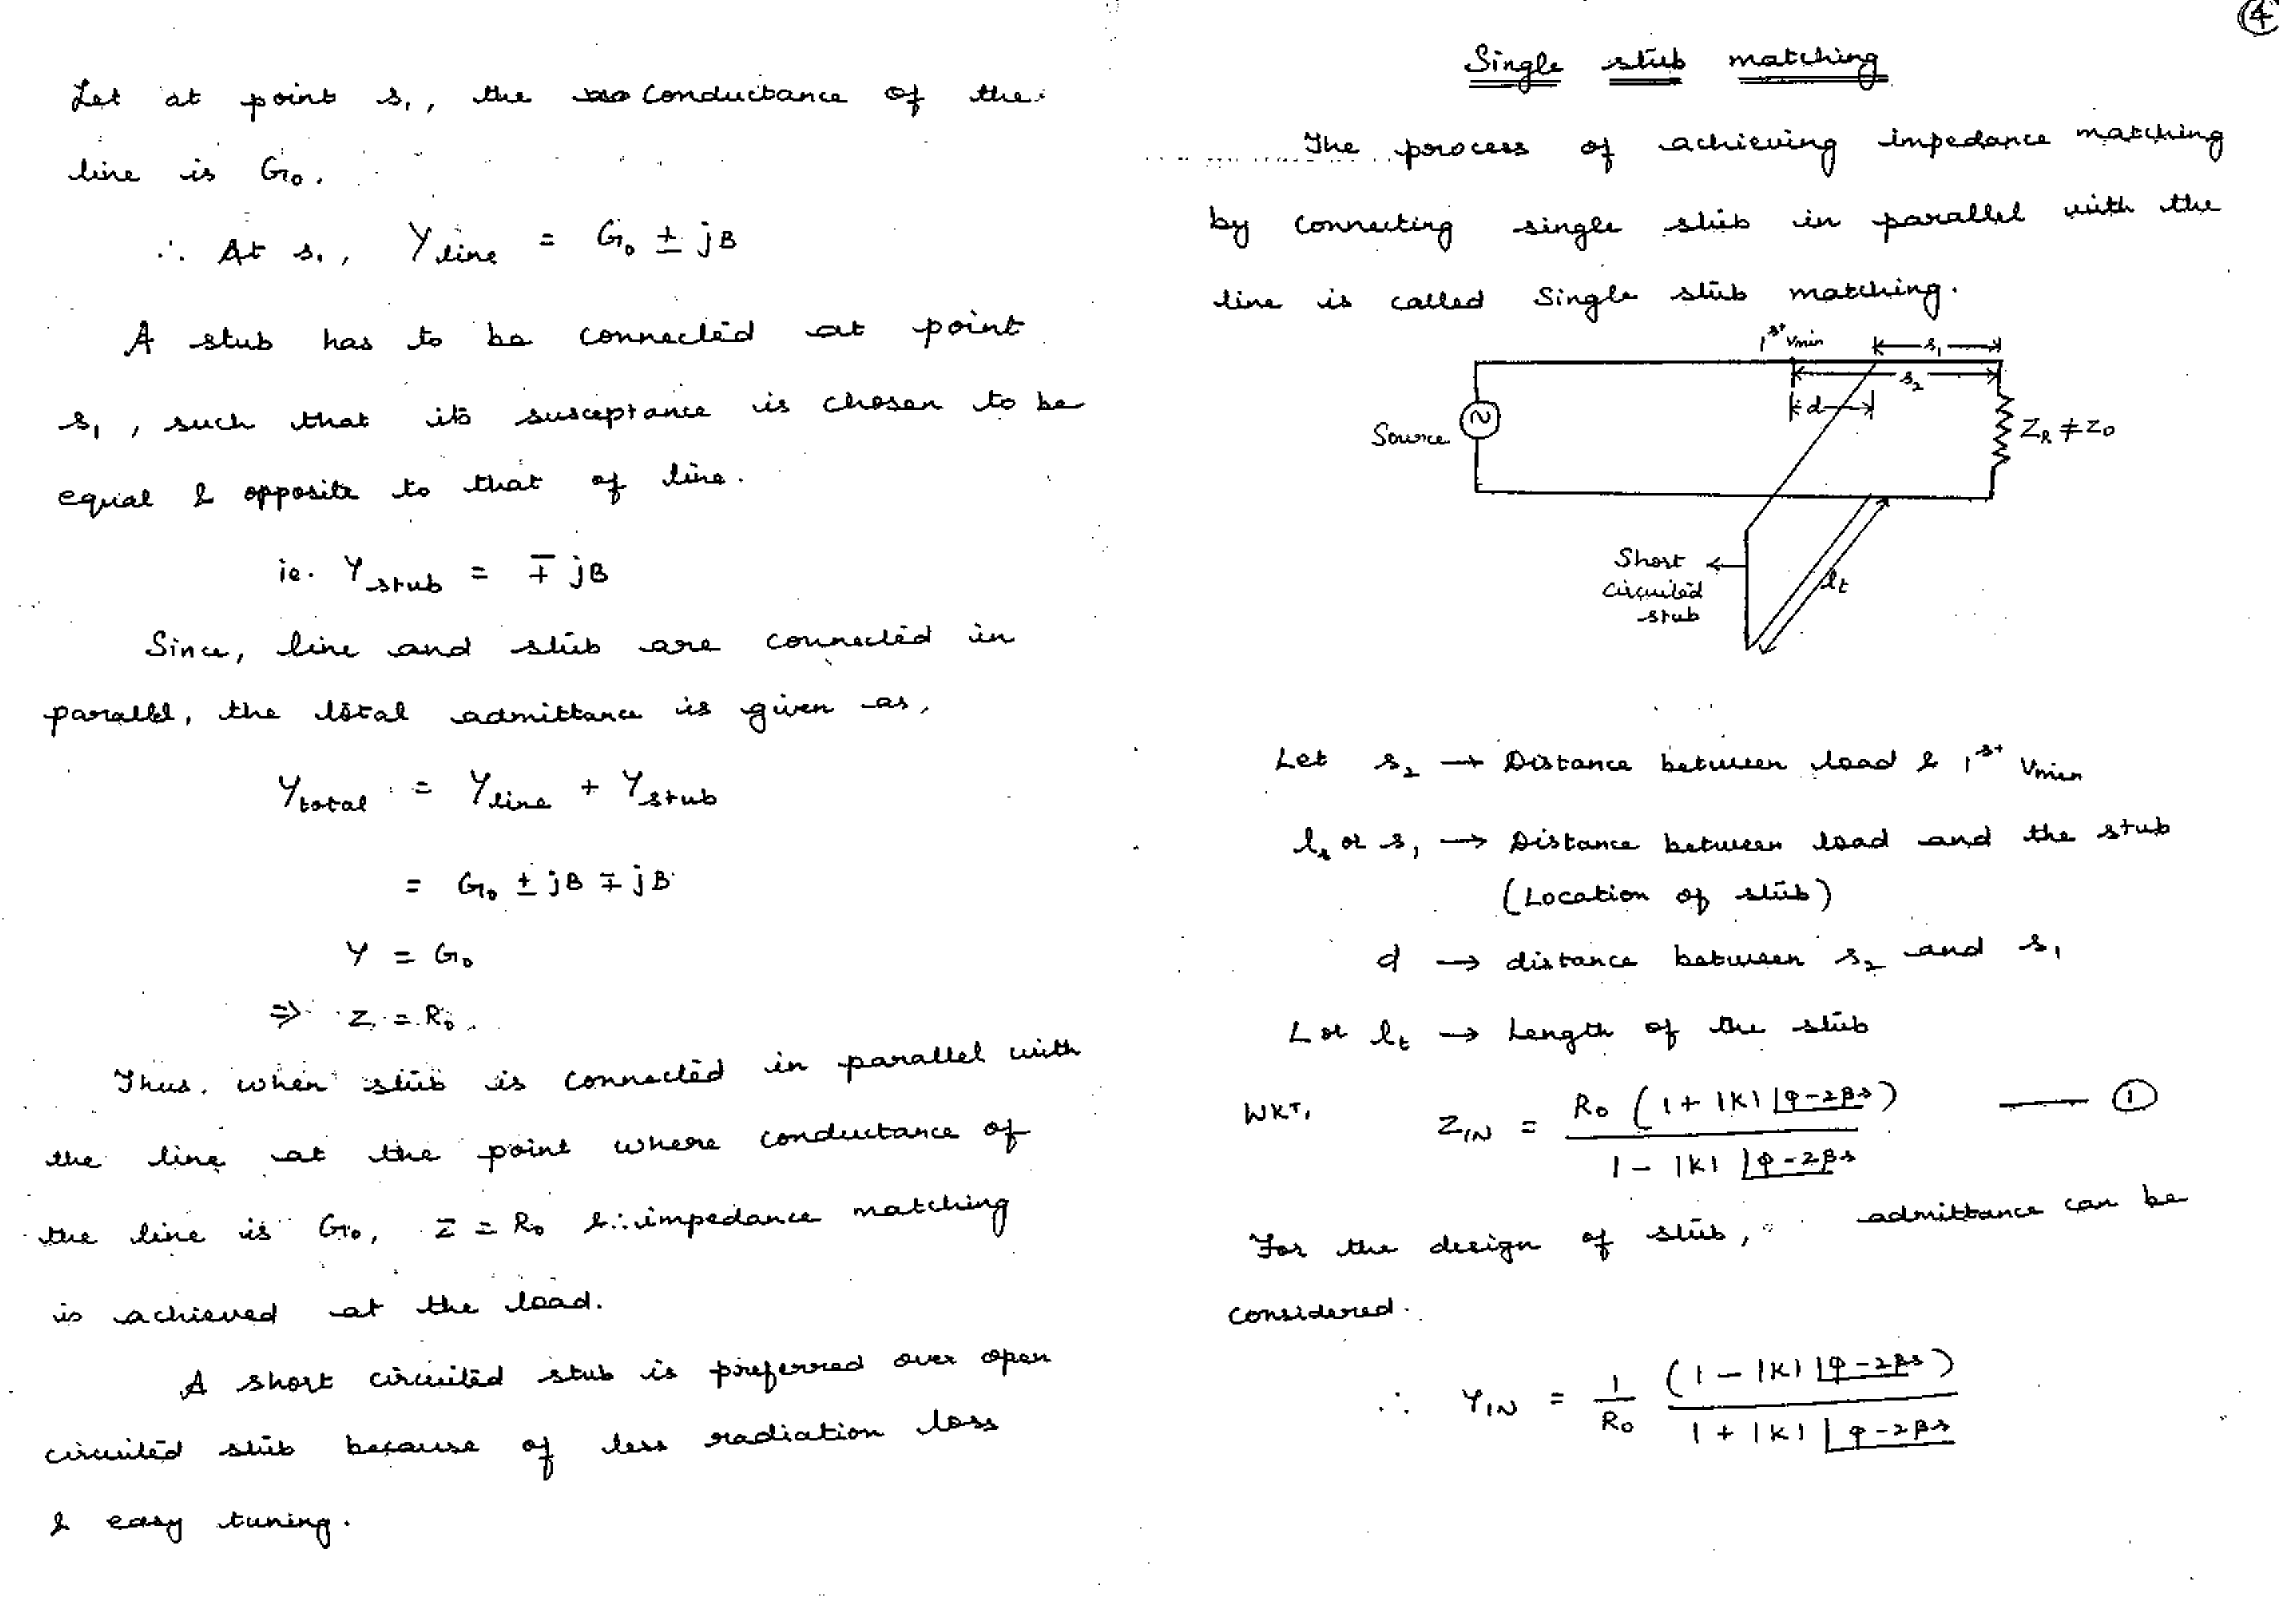 Let at point s₁, the conductance of the
line is G₀.
∴ At s₁, Y line = G₀ ± jB
A stub has to be connected at point
s₁, such that its susceptance is chosen to be
equal & opposite to that of line.
ie. Y stub = ∓ jB
Since, line and stub are connected in
parallel, the total admittance is given as,
Y total = Y line + Y stub
= G₀ ± jB ∓ jB
Y = G₀
⇒ Z = R₀.
Thus. when stub is connected in parallel with
the line at the point where conductance of
the line is G₀, Z = R₀ & ∴ impedance matching
is achieved at the load.
A short circuited stub is preferred over open
circuited stub because of less radiation loss
& easy tuning.
4
Single stub matching
The process of achieving impedance matching
by connecting single stub in parallel with the
line is called Single stub matching.
1st Vmin
s₁
s₂
d
Source
Z_R ≠ Z₀
Short
circuited
stub
l_t
Let s₂ → Distance between load & 1st Vmin
or s₁ → Distance between load and the stub
(Location of stub)
d → distance between s₂ and s₁
L or l_t → Length of the stub
WKT, Z_IN = R₀ (1 + |K| ∠φ-2βs) / 1 - |K| ∠φ-2βs —— ①
For the design of stub, admittance can be
considered.
∴ Y_IN = 1/R₀ (1 - |K| ∠φ-2βs) / 1 + |K| ∠φ-2βs